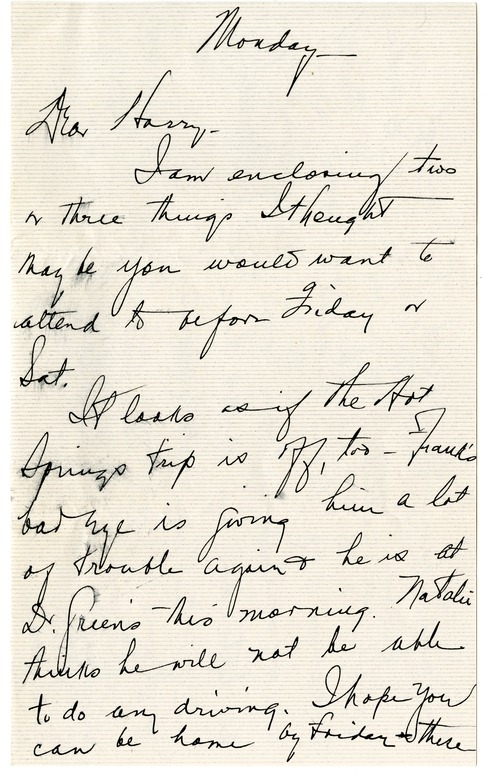 Monday—
Dear Harry—
I am enclosing two
or three things I thought
maybe you would want to
attend to before Friday or
Sat.
It looks as if the Hot
Springs trip is off, too – Frank's
bad eye is giving him a lot
of trouble again & he is at
Dr. Green's this morning. Natalie
thinks he will not be able
to do any driving. I hope you
can be home by Friday – there